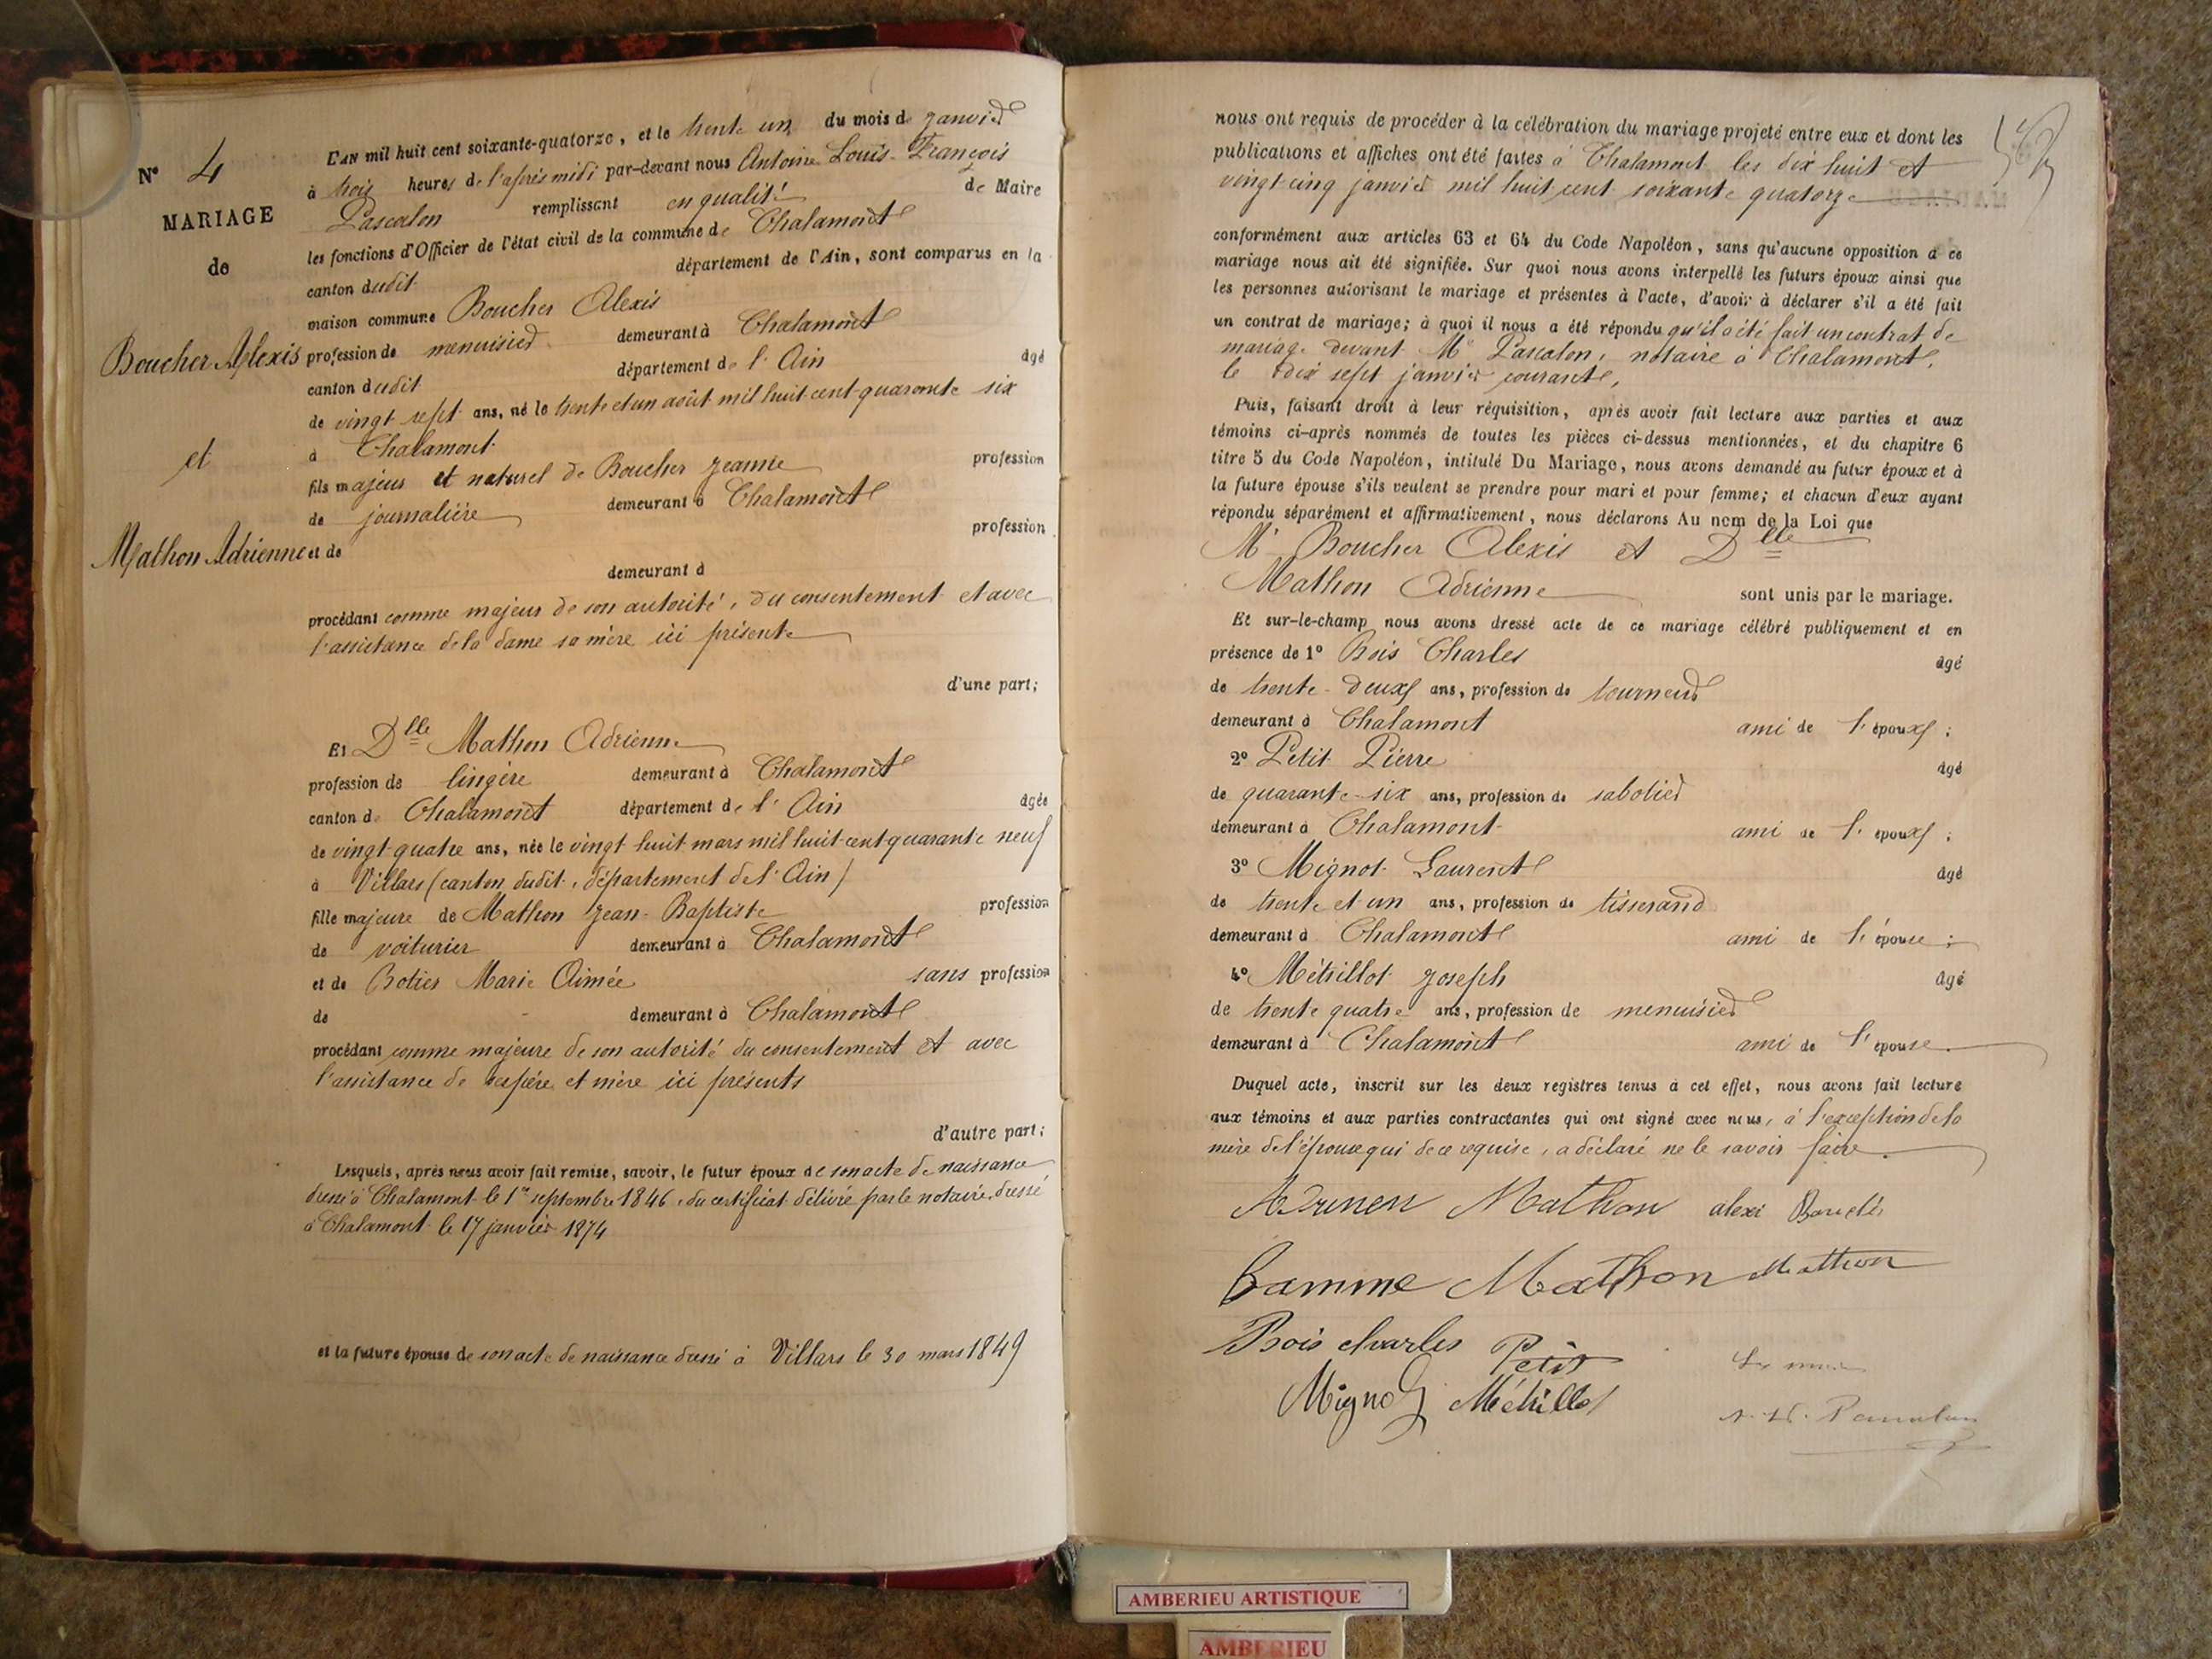 N° 4
MARIAGE
de
Boucher Alexis
et
Mathon Adrienne
L'AN mil huit cent soixante-quatorze, et le trente un du mois de janvier
à trois heures de l'après midi par-devant nous Antoine Louis-François
Pascalon remplissant en qualité de Maire
les fonctions d'Officier de l'état civil de la commune de Chalamont
canton dudit département de l'Ain, sont comparus en la
maison commune Boucher Alexis
profession de menuisier demeurant à Chalamont
canton dudit département de l'Ain âgé
de vingt sept ans, né le trente et un août mil huit cent quarante six
à Chalamont
fils majeur et naturel de Boucher Jeanne profession
de journalière demeurant à Chalamont
et de profession
demeurant à
procédant comme majeur de son autorité, du consentement et avec
l'assistance de la dame sa mère ici présente
d'une part;
Et Dlle Mathon Adrienne
profession de lingère demeurant à Chalamont
canton de Chalamont département de l'Ain âgée
de vingt-quatre ans, née le vingt huit mars mil huit cent quarante neuf
à Villars (canton dudit, département de l'Ain)
fille majeure de Mathon Jean-Baptiste profession
de voiturier demeurant à Chalamont
et de Marie Aimée sans profession
de demeurant à Chalamont
procédant comme majeure de son autorité du consentement et avec
l'assistance de ses père et mère ici présents
d'autre part;
Lesquels, après nous avoir fait remise, savoir, le futur époux de son acte de naissance
dressé à Chalamont le 1er septembre 1846, du certificat délivré par le notaire, dressé
à Chalamont le 17 janvier 1874
et la future épouse de son acte de naissance dressé à Villars le 30 mars 1849
nous ont requis de procéder à la célébration du mariage projeté entre eux et dont les
publications et affiches ont été faites à Chalamont les dix huit et
vingt-cinq janvier mil huit cent soixante quatorze
conformément aux articles 63 et 64 du Code Napoléon, sans qu'aucune opposition à ce
mariage nous ait été signifiée. Sur quoi nous avons interpellé les futurs époux ainsi que
les personnes autorisant le mariage et présentes à l'acte, d'avoir à déclarer s'il a été fait
un contrat de mariage; à quoi il nous a été répondu qu'il a été fait un contrat de
mariage devant Me Pascalon, notaire à Chalamont,
le dix sept janvier courant,
Puis, faisant droit à leur réquisition, après avoir fait lecture aux parties et aux
témoins ci-après nommés de toutes les pièces ci-dessus mentionnées, et du chapitre 6
titre 5 du Code Napoléon, intitulé Du Mariage, nous avons demandé au futur époux et à
la future épouse s'ils veulent se prendre pour mari et pour femme; et chacun d'eux ayant
répondu séparément et affirmativement, nous déclarons Au nom de la Loi que
Mr Boucher Alexis et Dlle
Mathon Adrienne sont unis par le mariage.
Et sur-le-champ nous avons dressé acte de ce mariage célébré publiquement et en
présence de 1° Bois Charles âgé
de trente-deux ans, profession de tourneur
demeurant à Chalamont ami de l'époux;
2° Petit Pierre âgé
de quarante-six ans, profession de sabotier
demeurant à Chalamont ami de l'époux;
3° Mignot Laurent âgé
de trente et un ans, profession de tisserand
demeurant à Chalamont ami de l'épouse;
4° Métrillot Joseph âgé
de trente quatre ans, profession de menuisier
demeurant à Chalamont ami de l'épouse.
Duquel acte, inscrit sur les deux registres tenus à cet effet, nous avons fait lecture
aux témoins et aux parties contractantes qui ont signé avec nous, à l'exception de la
mère de l'époux qui de ce requise, a déclaré ne le savoir faire.
Mathon alexi
Mathon Mathon
Bois charles Petit
Mignot Métrillot
AMBERIEU ARTISTIQUE
AMBERIEU